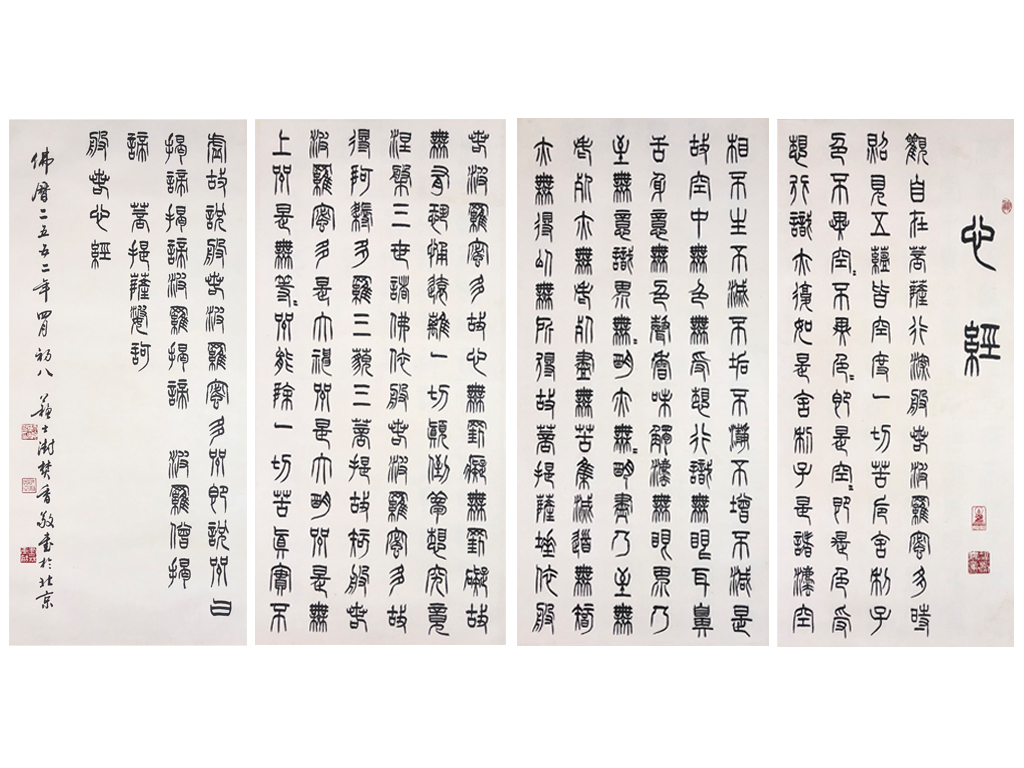 心經
觀自在菩薩行深般若波羅蜜多時
照見五蘊皆空度一切苦厄舍利子
色不異空〻不異色〻即是空〻即是色受
想行識亦復如是舍利子是諸法空
相不生不滅不垢不淨不增不減是
故空中無色無受想行識無眼耳鼻
舌身意無色聲香味觸法無眼界乃
至無意識界無〻明亦無〻明盡乃至無
老死亦無老死盡無苦集滅道無智
亦無得以無所得故菩提薩埵依般
若波羅蜜多故心無罣礙無罣礙故
無有恐怖遠離一切顛倒夢想究竟
涅槃三世諸佛依般若波羅蜜多故
得阿耨多羅三藐三菩提故知般若
波羅蜜多是大神咒是大明咒是無
上咒是無等〻咒能除一切苦真實不
虛故說般若波羅蜜多咒即說咒曰
揭諦揭諦波羅揭諦 波羅僧揭
諦 菩提薩婆訶
般若心經
佛曆二五五二年四月初八 蘇士澍焚香敬書於北京